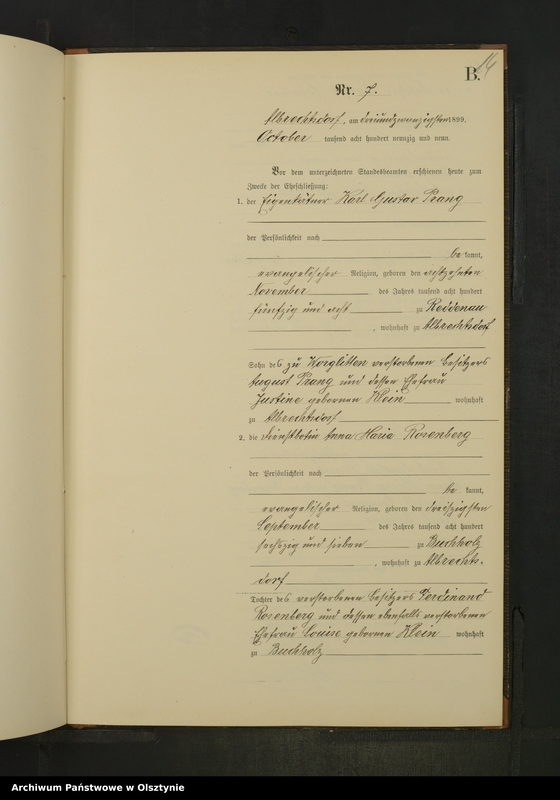 B. 14
Nr. 7.
Albrechtsdorf, am dreiundzwanzigsten 1899.
October tausend acht hundert neunzig und neun.
Vor dem unterzeichneten Standesbeamten erschienen heute zum
Zwecke der Eheschließung:
1. der Eigenkätner Karl Gustav Prang
der Persönlichkeit nach
be kannt,
evangelischer Religion, geboren den achtzehnten
November des Jahres tausend acht hundert
fünfzig und acht zu Reddenau
, wohnhaft zu Albrechtsdorf
Sohn des zu Worglitten verstorbenen Besitzers
August Prang und dessen Ehefrau
Justine geborenen Klein wohnhaft
zu Albrechtsdorf
2. die Dienstbotin Anna Maria Rosenberg
der Persönlichkeit nach
be kannt,
evangelischer Religion, geboren den dreiszigsten
September des Jahres tausend acht hundert
sechszig und sieben zu Buchholz
, wohnhaft zu Albrechts-
dorf
Tochter des verstorbenen Besitzers Ferdinand
Rosenberg und dessen ebenfalls verstorbenen
Ehefrau Louise geborenen Klein wohnhaft
zu Buchholz
Archiwum Państwowe w Olsztynie